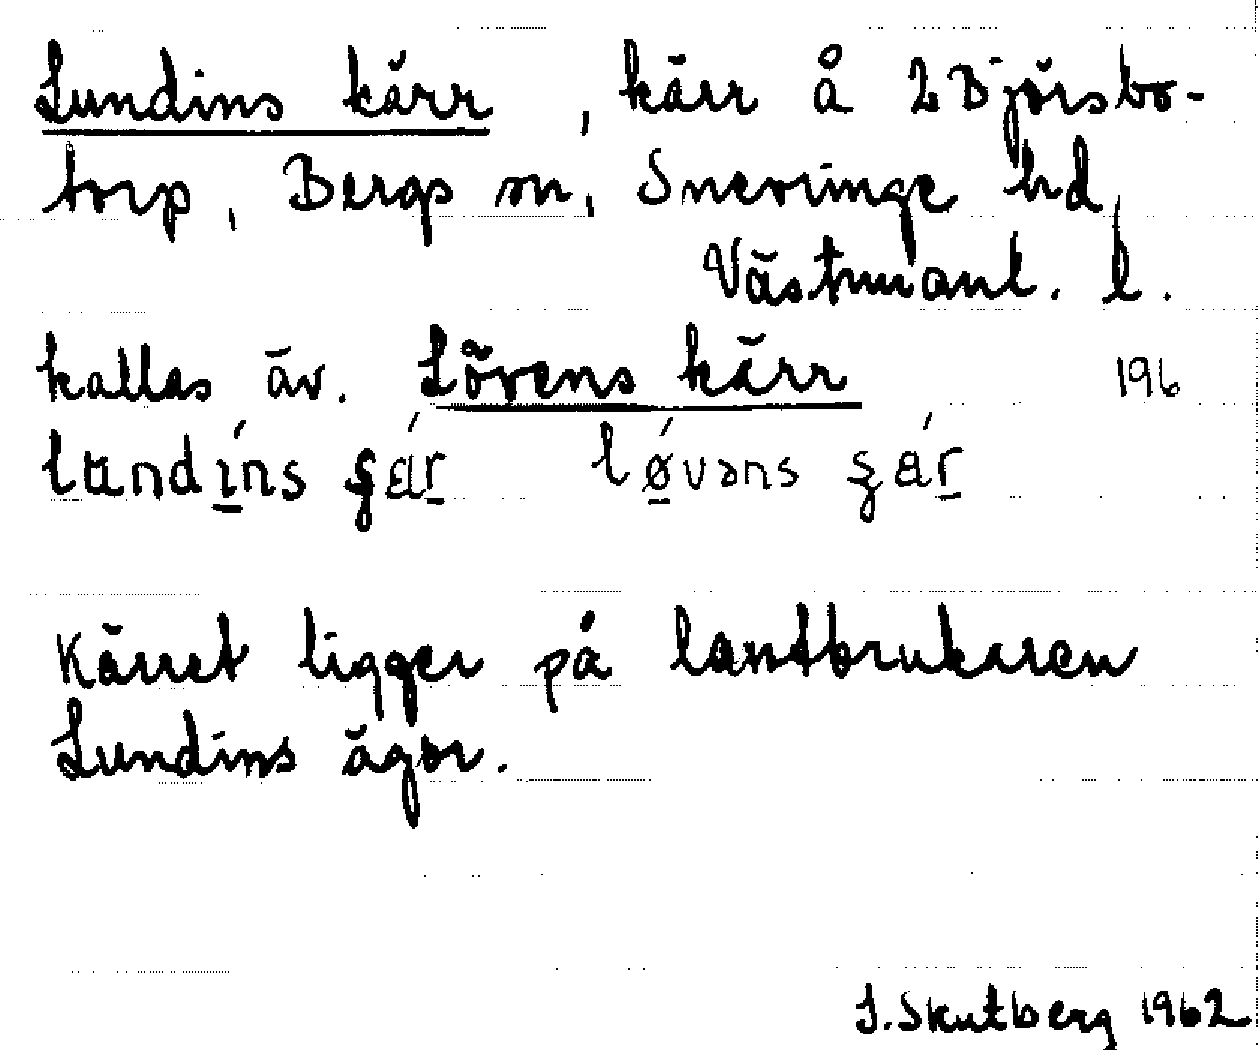 Lundins kärr, kärr å 2 Björsbo-
torp, Bergs sn, Snevringe hd,
Västmanl. l.
kallas äv. Lövens kärr 196
Kärret ligger på lantbrukaren
Lundins ägor.
I. Skutberg 1962